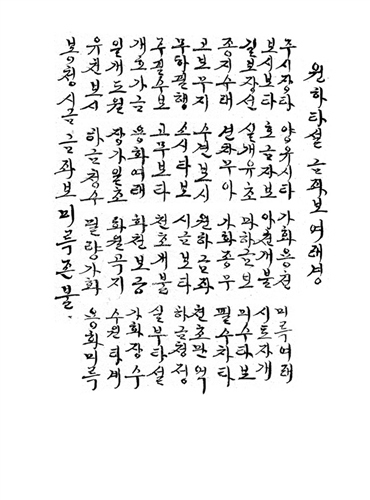 원하타설 금좌보 여래경
주시장타 양유시타 가화응천 미륵여래
보시보타 호금자보 아천개불 시트자개
결보장선 실개유초 파하금보 미수타보
종지수래 연화무아 가화종우 필수차타
고보무지 수견보시 원하금좌 천초만억
묵하필행 소식타보 시금보타 하금청정
국필수보 고무보타 천초계불 실부타설
개호가금 용화여래 화천보궁 가화장수
원개도원 장가원초 화원국지 수원타계
유천보시 하금청수 필랑가화 용화미륵
봉청시금 금좌보 미륵존불.